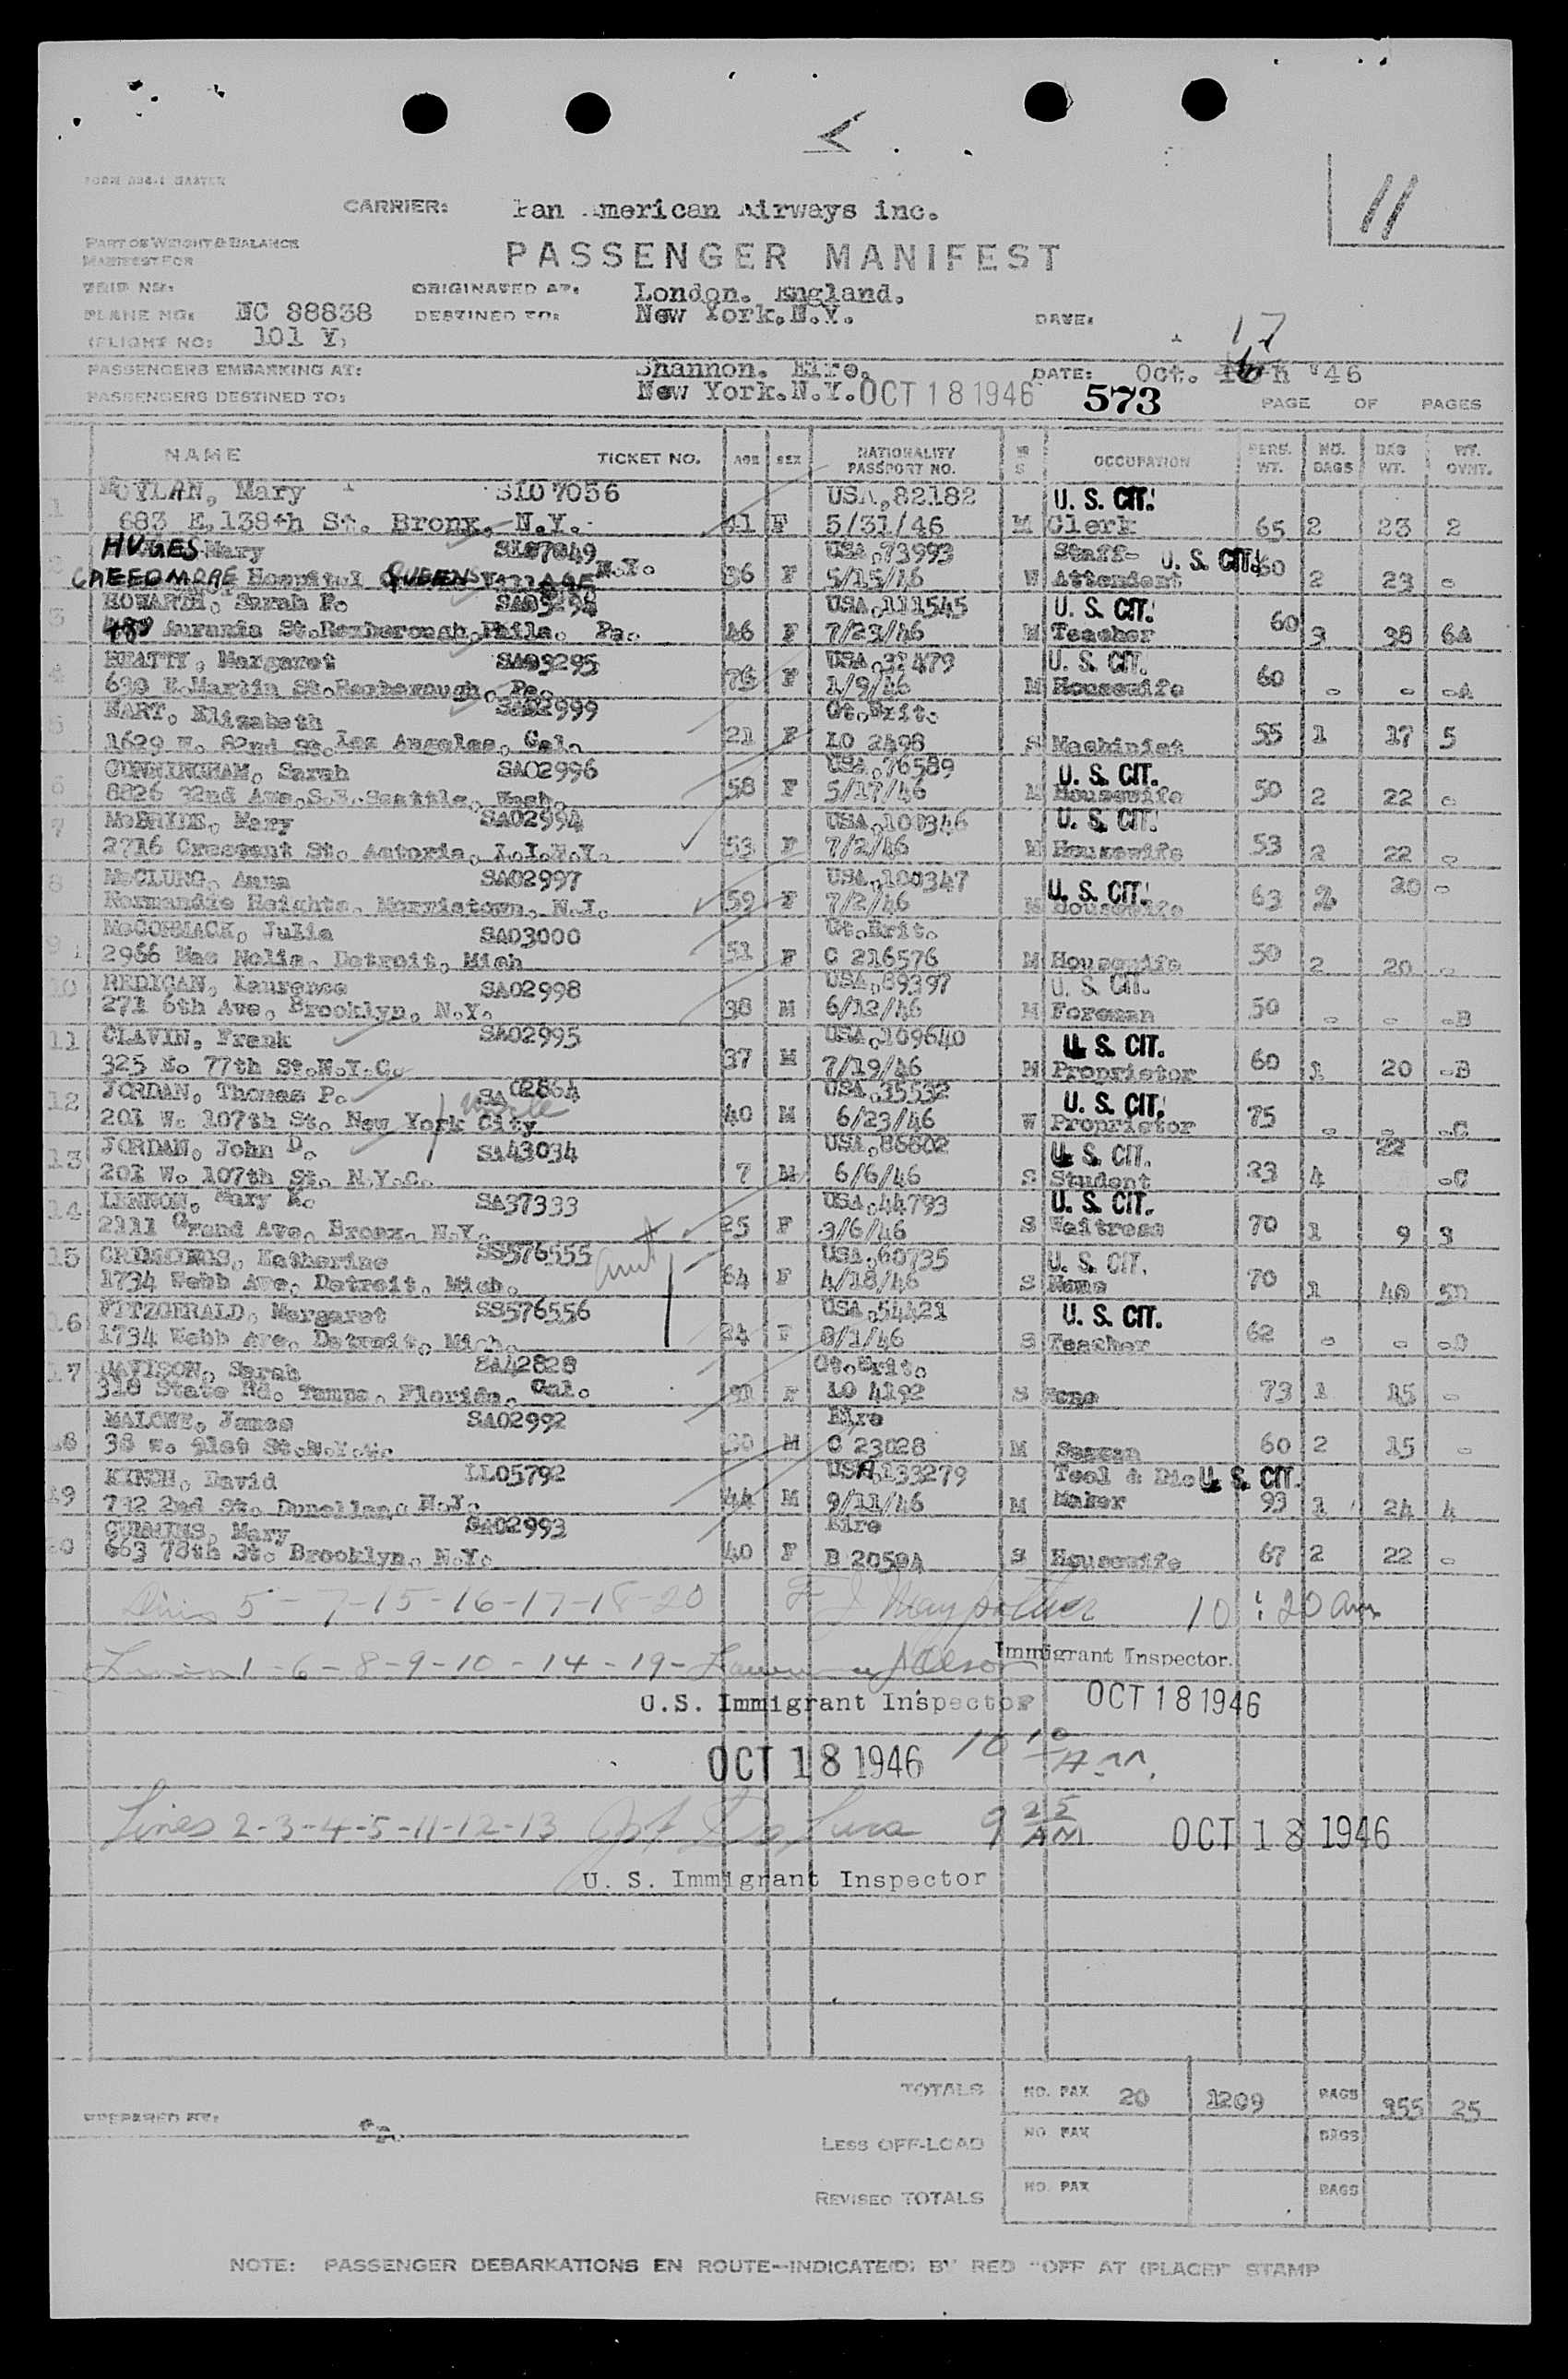 FORM 934-1 MASTER
11
CARRIER: Pan American Airways inc.
PART OF WEIGHT & BALANCE
MANIFEST FOR
PASSENGER MANIFEST
TRIP NO: ORIGINATED AT: London. England.
PLANE NO: NC 88838 DESTINED TO: New York.N.Y. DATE: 17
(FLIGHT NO: 101 Y)
PASSENGERS EMBARKING AT: Shannon. Eire. DATE: Oct. '46
PASSENGERS DESTINED TO: New York.N.Y. OCT 18 1946 573 PAGE OF PAGES
NAME TICKET NO. AGE SEX NATIONALITY PASSPORT NO. OCCUPATION PERS. WT. NO. BAGS BAG WT. WT. OVWT.
1 MOYLAN, Mary SLO7056 USA,82182 U. S. CIT.
683 E,138th St. Bronx, N.Y. 41 F 5/31/46 M Clerk 65 2 23 2
HUGES Mary USA,73993 Staff- U. S. CIT.
CREEDMORE Hospital QUEENS VillAGE N.Y. 36 F 5/15/46 W Attendent 60 2 23 -
3 HOWARTH, Sarah P. USA,111545 U. S. CIT.
489 Aurania St.Roxborough,Phila. Pa. 46 F 7/23/46 M Teacher 60 3 38 6A
4 BEATTY, Margaret SA03295 U. S. CIT.
630 E.Martin St.Roxborough, Pa. 76 F 1/9/46 M Housewife 60 - - -A
5 HART, Elizabeth SA02999 Gt.Brit.
1629 W. 82nd St.Los Angeles, Cal. 21 F LO 2498 S Machinist 55 1 17 5
6 CUNNINGHAM, Sarah SA02996 USA,76589 U. S. CIT.
8826 32nd Ave.S.W.Seattle, Wash. 58 F 5/17/46 M Housewife 50 2 22 -
7 McBRIDE, Mary SA02994 USA,100346 U. S. CIT.
2716 Crescent St. Astoria, L.I.N.Y. 53 F 7/2/46 M Housewife 53 2 22 -
8 McCLURG, Anna SA02997 USA,100347 U. S. CIT.
Normandie Heights, Morristown, N.J. 59 F 7/2/46 M Housewife 63 2 20 -
9 McCORMACK, Julia SA03000 Gt.Brit.
2966 Mac Nolia. Detroit, Mich 51 F C 216576 M Housewife 50 2 20 -
10 REDIGAN, Laurence SA02998 USA,89397 U. S. CIT.
271 6th Ave, Brooklyn, N.Y. 38 M 6/12/46 M Foreman 50 - - -B
11 CLAVIN, Frank SA02995 USA,109640 U. S. CIT.
325 E. 77th St.N.Y.C. 37 M 7/19/46 M Proprietor 60 1 20 -B
12 JORDAN, Thomas P. SA 02864 USA,35532 U. S. CIT.
201 W. 107th St. New York City 40 M 6/23/46 W Proprietor 75 - - -C
13 JORDAN, John D. SA43034 USA,86602 U. S. CIT. 22
201 W. 107th St. N.Y.C. 7 M 6/6/46 S Student 33 4 -C
14 LENNON, Mary K. SA37333 USA,44793 U. S. CIT.
2111 Grand Ave, Bronx, N.Y. 25 F 3/6/46 S Waitress 70 1 9 3
15 Katherine SS576555 aunt USA,60735 U. S. CIT.
1734 Webb Ave, Detroit, Mich. 64 F 4/18/46 S None 70 1 40 5D
16 FITZGERALD, Margaret SS576556 USA,54421 U. S. CIT.
1734 Webb Ave, Detroit, Mich. 24 F 8/1/46 S Teacher 62 - - -D
17 DAVISON, Sarah SA42828 Gt.Brit.
318 State Rd. Tampa, Florida, Cal. F LO 4192 S None 73 1 15 -
18 MALONE, James SA02992 Eire
38 W. 91st St.N.Y.C. 30 M C 23028 M Seaman 60 2 15 -
19 David LL05792 USA,133279 Tool & Die U. S. CIT.
742 2nd St. Dunellen, N.J. 44 M 9/11/46 M Maker 93 1 24 4
20 CUMMINS, Mary SA02993 Eire
663 78th St. Brooklyn, N.Y. 40 F B 2050A S Housewife 67 2 22 -
5 - 7 - 15 - 16 - 17 - 18 - 20 10:20 am
Immigrant Inspector.
1 - 6 - 8 - 9 - 10 - 14 - 19 -
U.S. Immigrant Inspector OCT 18 1946
OCT 18 1946 10 10 A.M.
Lines 2-3-4-5-11-12-13 9 25 AM OCT 18 1946
U. S. Immigrant Inspector
TOTALS NO. PAX 20 1209 BAGS 355 25
PREPARED BY:
LESS OFF-LOAD NO. PAX BAGS
REVISED TOTALS NO. PAX BAGS
NOTE: PASSENGER DEBARKATIONS EN ROUTE--INDICATE(D) BY RED "OFF AT (PLACE)" STAMP